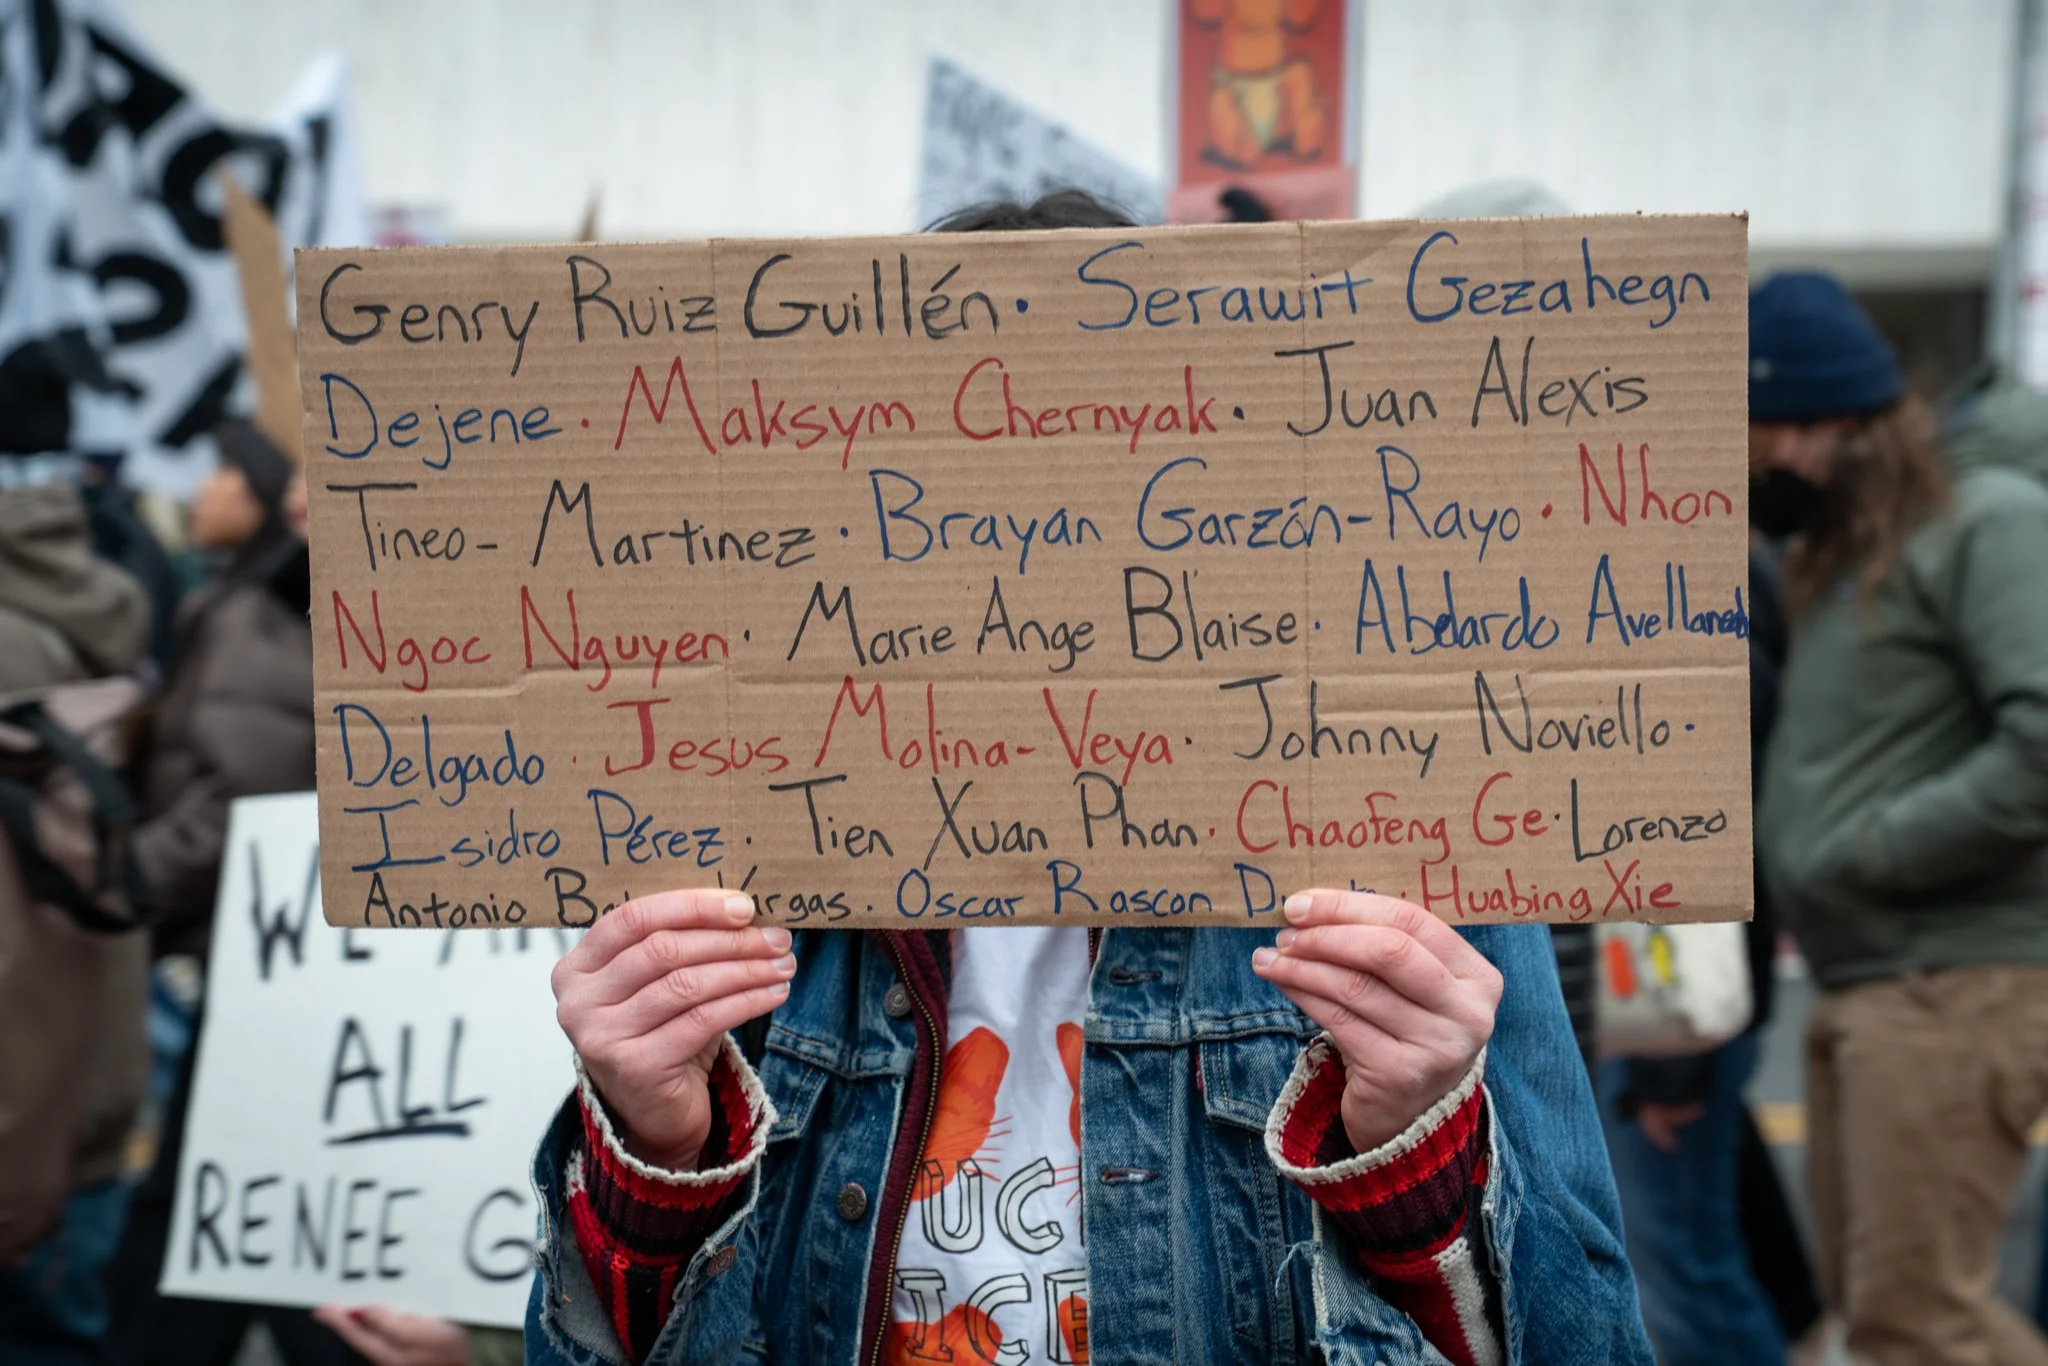 Genry Ruiz Guillén · Serawit Gezahegn
Dejene · Maksym Chernyak · Juan Alexis
Tineo- Martinez · Brayan Garzón-Rayo · Nhon
Ngoc Nguyen · Marie Ange Blaise · Abelardo Avellaneda
Delgado · Jesus Molina-Veya · Johnny Noviello ·
Isidro Pérez · Tien Xuan Phan · Chaofeng Ge · Lorenzo
Antonio Vargas · Oscar Rascon · Huabing Xie
WE
ALL
RENEE G
UC
ICE